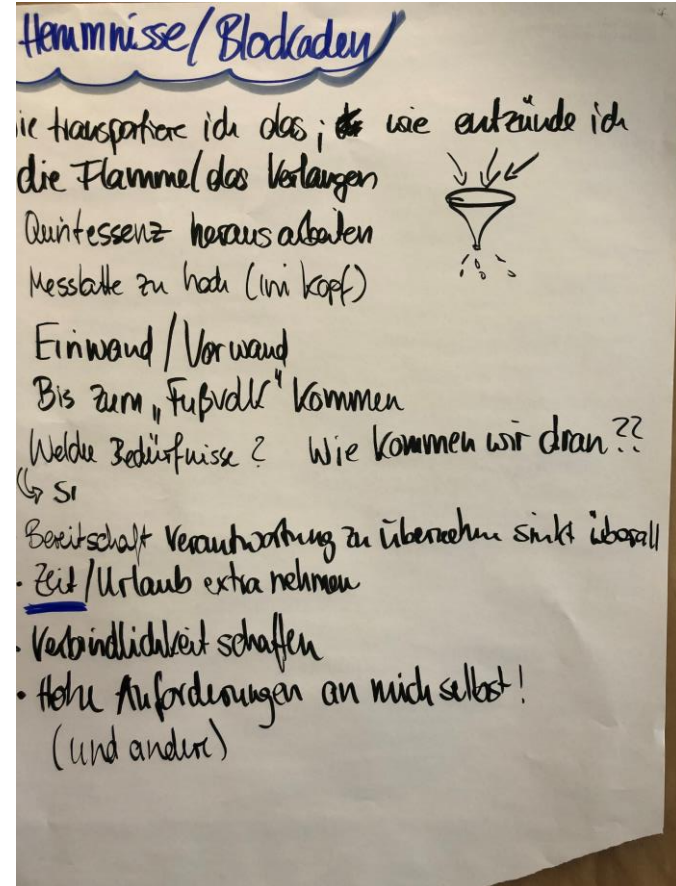 Hemmnisse/Blockaden
ie transportiere ich das; wie entzünde ich
die Flamme/das Verlangen
Quintessenz herausarbeiten
Messlatte zu hoch (im Kopf)
Einwand/Vorwand
Bis zum „Fußvolk" kommen
Welche Bedürfnisse? Wie kommen wir dran??
↳ SI
Bereitschaft Verantwortung zu übernehm sinkt überall
· Zeit/Urlaub extra nehmen
· Verbindlichkeit schaffen
· Hohe Anforderungen an mich selbst!
(und andere)